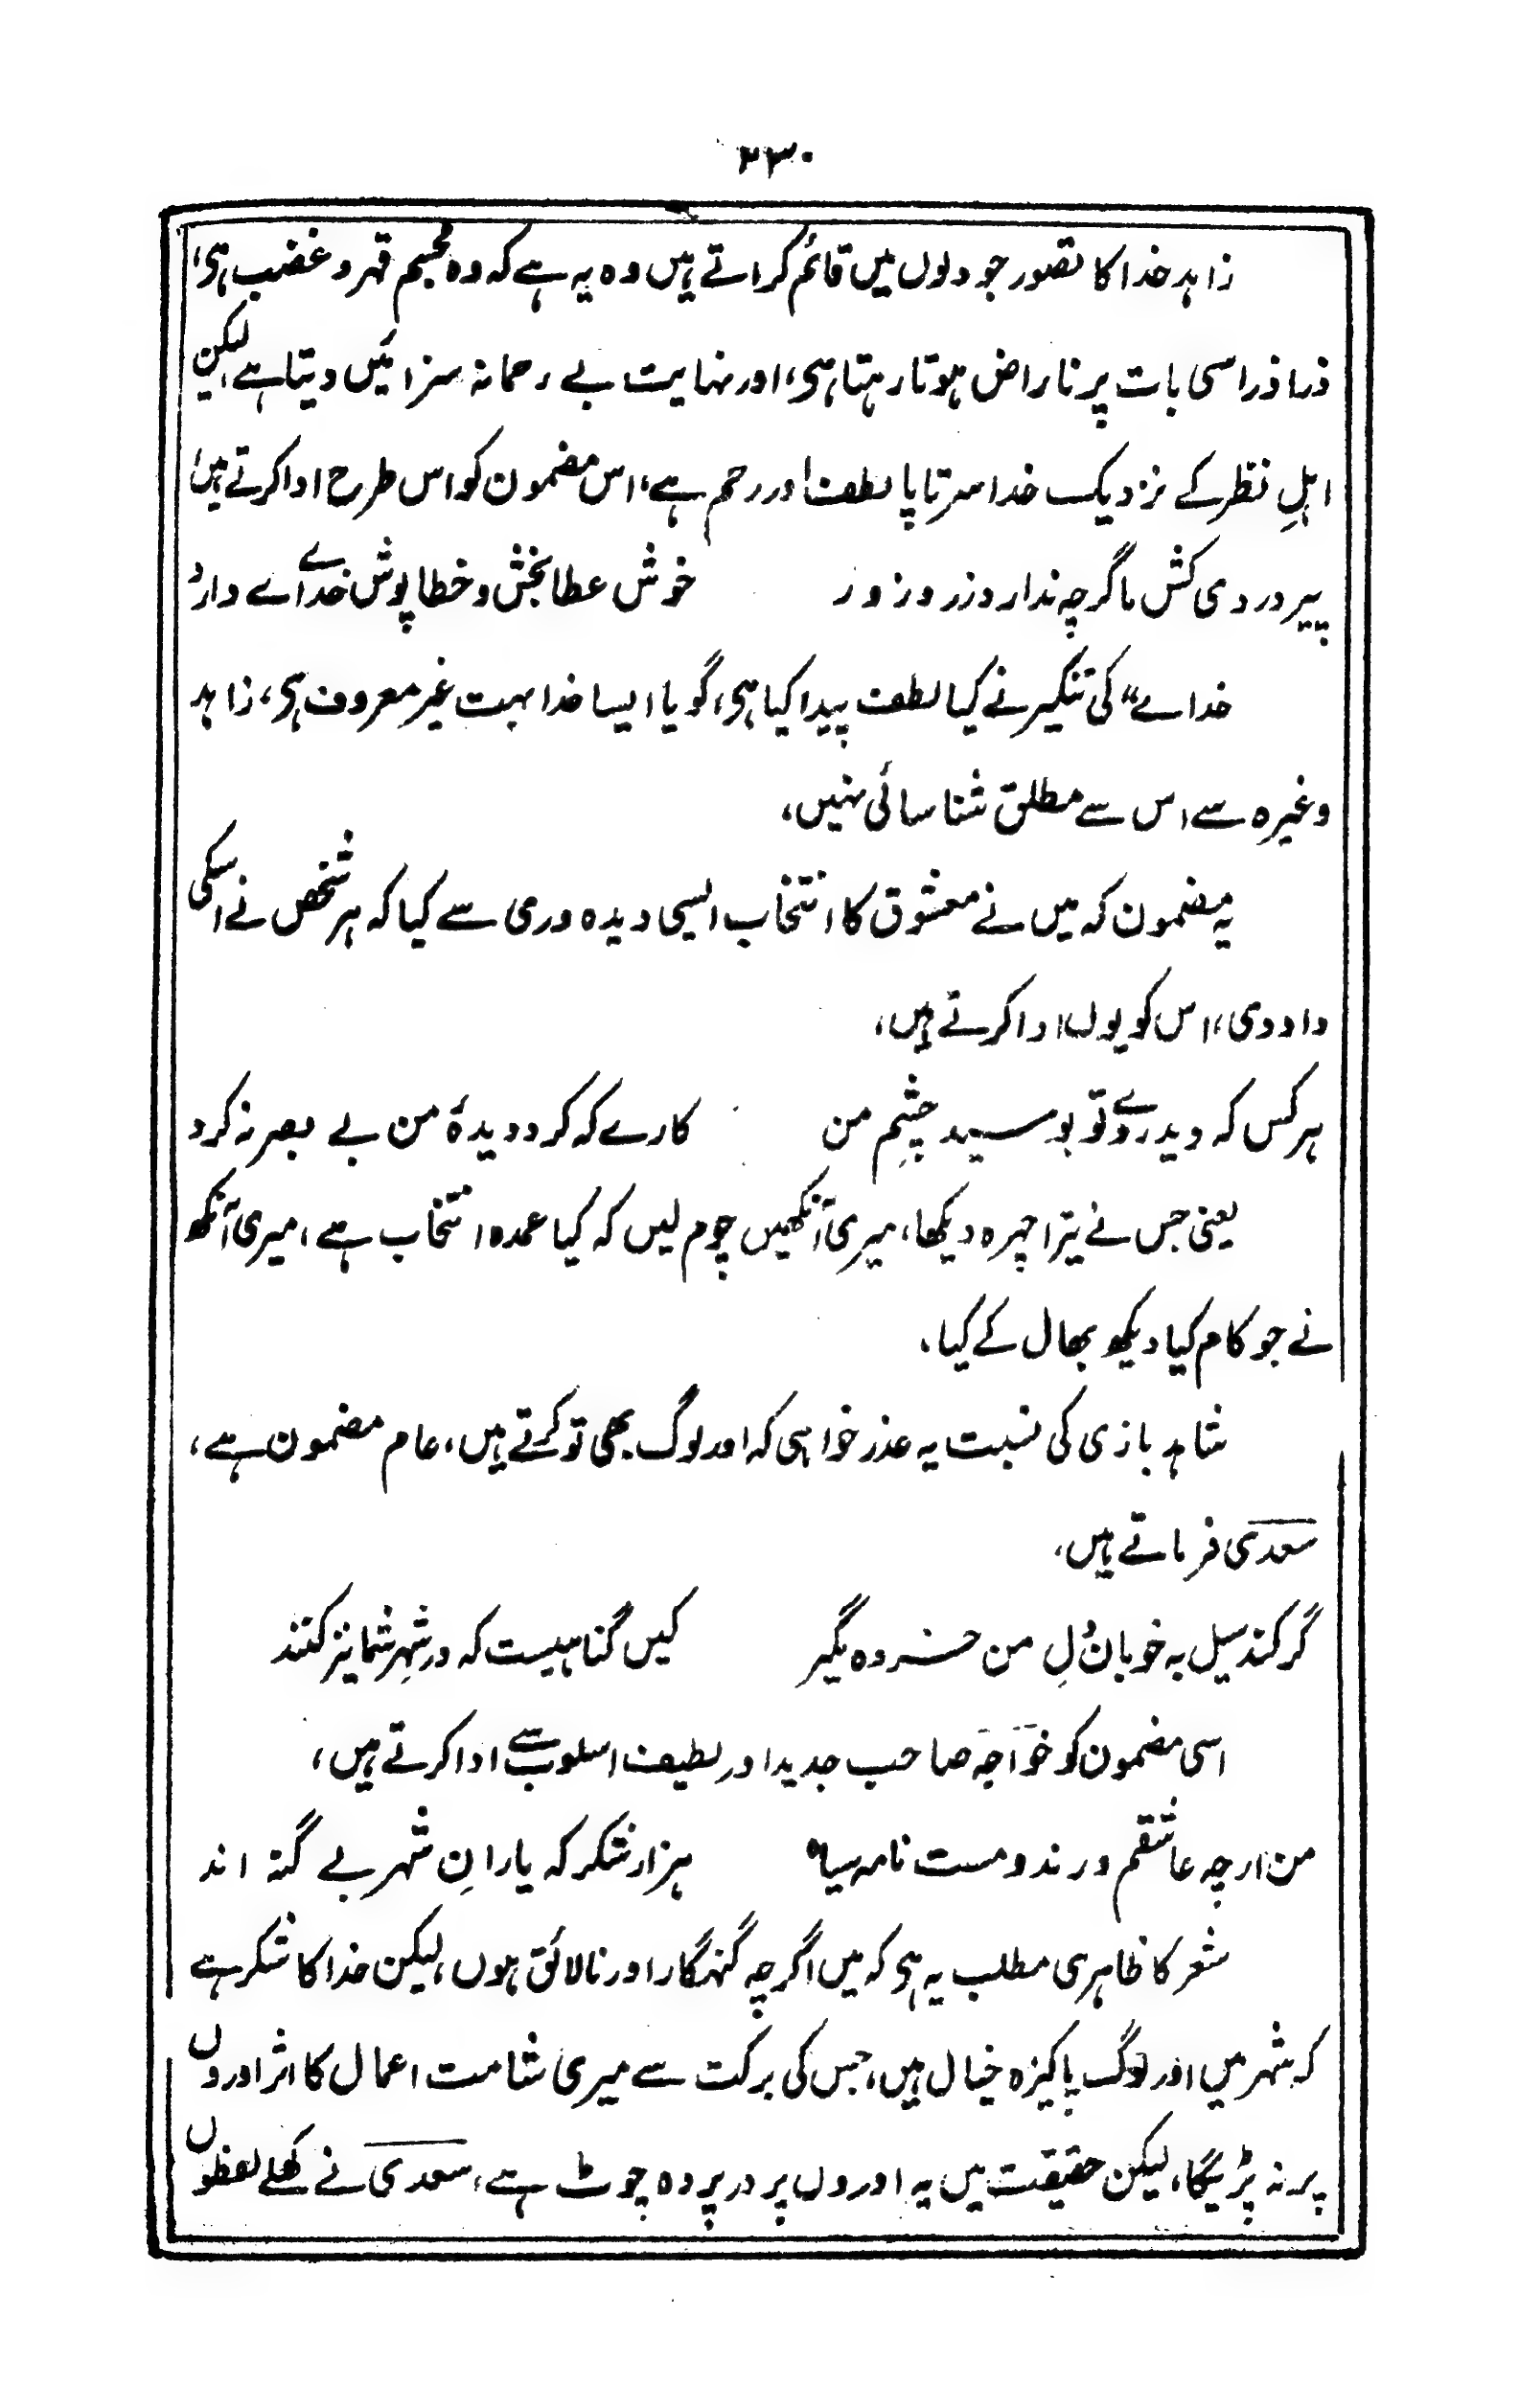 ۲۳۰
زاہد خدا کا تصور جو دلوں میں قائم کراتے ہیں وہ یہ ہے کہ وہ مجسم قہر و غضب ہی،
ذرا ذرا سی بات پر ناراض ہوتا رہتا ہی، اور نہایت بے رحمانہ سزائیں دیتا ہے، لیکن
اہلِ نظر کے نزدیک خدا سرتاپا لطف اور رحم ہے، اس مضمون کو اس طرح ادا کرتے ہیں،
پیر دردی کش ما گرچہ ندارد زر و زور خوش عطا بخش و خطا پوش خداے دارد
خداے" کی تنکیر نے کیا لطف پیدا کیا ہی، گویا ایسا خدا بہت غیر معروف ہی، زاہد
وغیرہ سے اس سے مطلق شناسائی نہیں،
یہ مضمون کہ میں نے معشوق کا انتخاب ایسی دیدہ وری سے کیا کہ ہر شخص نے اسکی
داد دی، اس کو یوں ادا کرتے ہیں،
ہر کس کہ دید روے تو بوسید چشمِ من کارے کہ کرد دیدۂ من بے بصر نہ کرد
یعنی جس نے تیرا چہرہ دیکھا، میری آنکھیں چوم لیں کہ کیا عمدہ انتخاب ہے، میری آنکھ
نے جو کام کیا دیکھ بھال کے کیا،
شاہد بازی کی نسبت یہ عذر خواہی کہ اور لوگ بھی تو کرتے ہیں، عام مضمون ہے،
سعدی فرماتے ہیں،
گر کند میل بہ خوباں دلِ من خردہ مگیر کیں گناہیست کہ در شہرِ شما نیز کنند
اسی مضمون کو خواجہ صاحب جدید اور لطیف اسلوب سے ادا کرتے ہیں،
من ارچہ عاشقم و رند و مست نامہ سیاہ ہزار شکر کہ یارانِ شہر بے گنہ اند
شعر کا ظاہری مطلب یہ ہی کہ میں اگرچہ گنہگار اور نالائق ہوں، لیکن خدا کا شکر ہے
کہ شہر میں اور لوگ پاکیزہ خیال ہیں، جس کی برکت سے میری شامت اعمال کا اثر اوروں
پر نہ پڑیگا، لیکن حقیقت میں یہ اوروں پر در پردہ چوٹ ہے، سعدی نے کھلے لفظوں